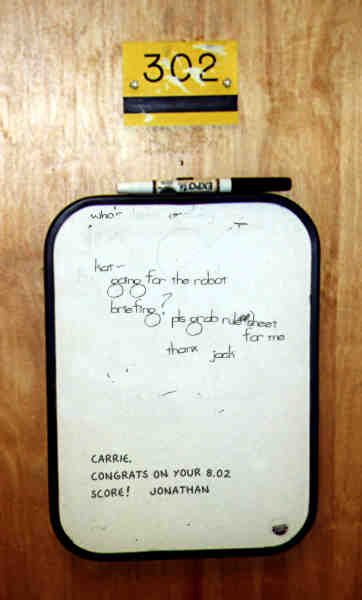 302
EXPO
who's
kat-
going for the robot
briefing? pls grab rule sheet
for me
thanx jack
CARRIE,
CONGRATS ON YOUR 8.02
SCORE! JONATHAN